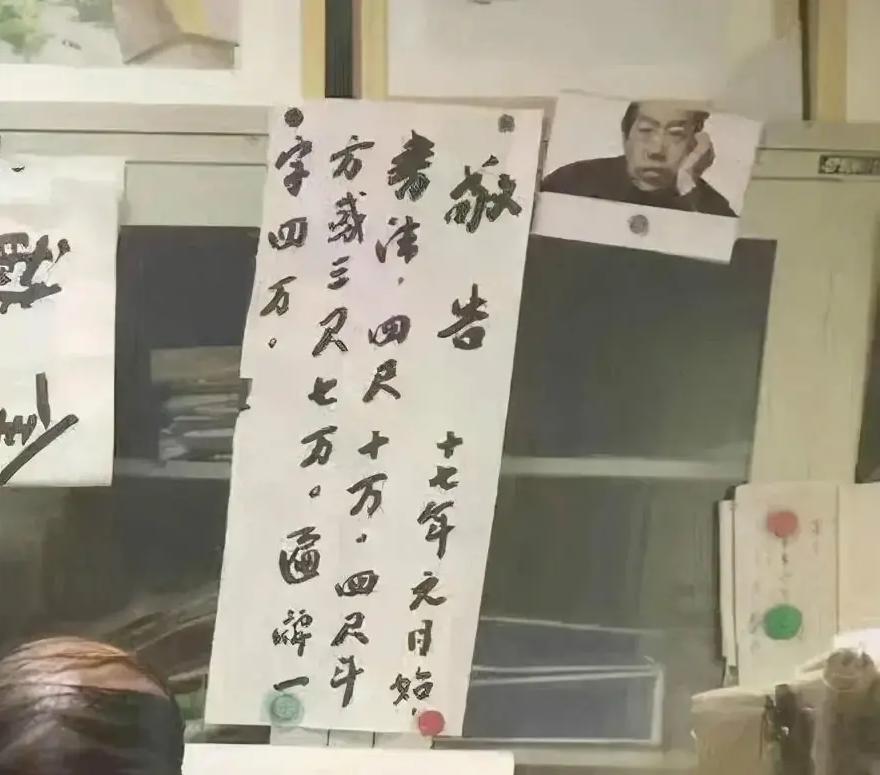 敬告 十七年元月始，
書法，四尺十万，四尺斗
方或三尺七万。匾牌一
字四万。